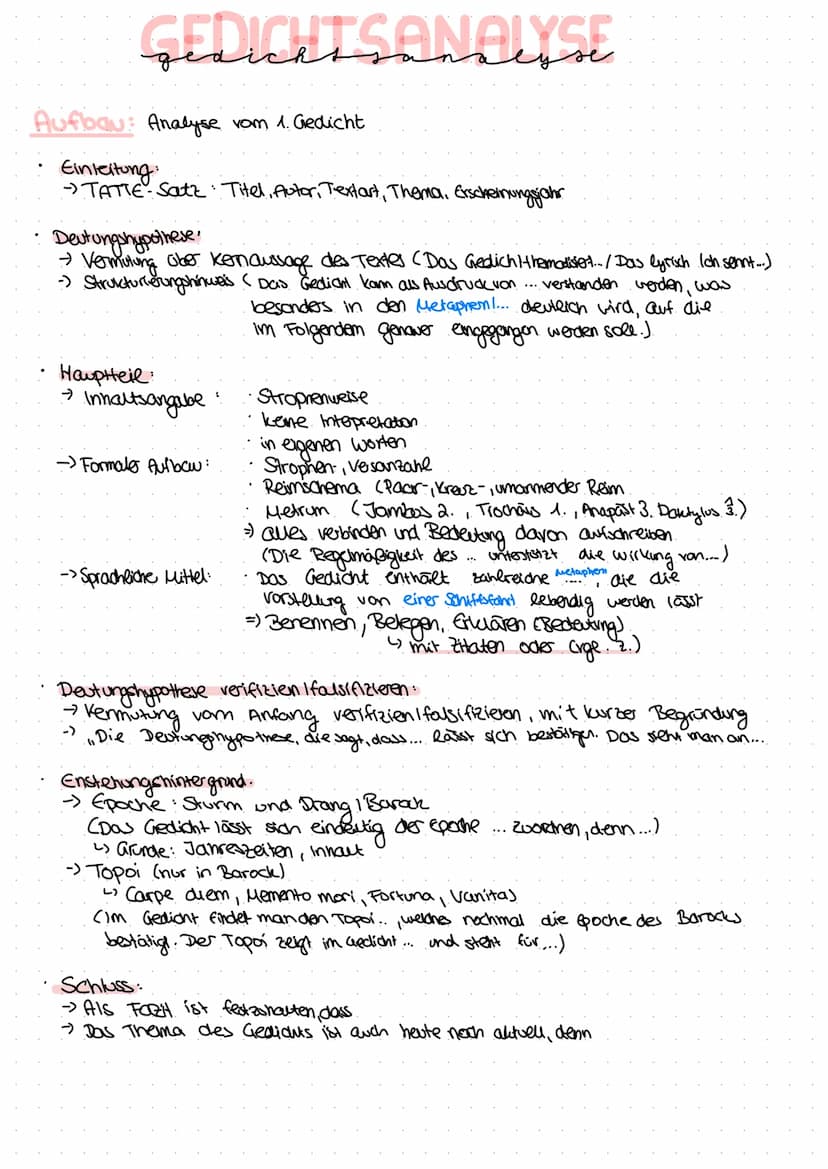 GEDICHTSANALYSE
gedichtsanalyse
Aufbau: Analyse vom 1. Gedicht
· Einleitung:
→ TATTE-Satz: Titel, Autor, Textart, Thema, Erscheinungsjahr
· Deutungshypothese:
→ Vermutung über Kernaussage des Textes (Das Gedicht thematisiert.../ Das lyrisch Ich sehnt...)
→ Strukturierungshinweis (Das Gedicht kann als Ausdruck von ... verstanden werden, was
besonders in den Metaphern/... deutlich wird, auf die
im Folgendem genauer eingegangen werden soll.)
· Hauptteil:
→ Inhaltsangabe: · Strophenweise
· keine Intepretation
· in eigenen Worten
→ Formaler Aufbau: · Strophen-, Versanzahl
· Reimschema (Paar-, Kreuz-, umarmender Reim
· Metrum (Jambus 2., Trochäus 1., Anapäst 3. Daktylus 3.)
⇒ alles verbinden und Bedeutung davon aufschreiben
(Die Regelmäßigkeit des ... unterstützt die Wirkung von...)
→ Sprachliche Mittel: · Das Gedicht enthält zahlreiche Metaphern ...., die die
Vorstellung von einer Schifffahrt lebendig werden lässt
⇒ Benennen, Belegen, Erklären (Bedeutung)
↳ mit Zitaten oder (vgl. Z.)
· Deutungshypothese verifizien/falsifizieren:
→ Vermutung vom Anfang verifizien/falsifizieren, mit kurzer Begründung
→ „Die Deutungshypothese, die sagt, dass... lässt sich bestätigen. Das sieht man an...
· Enstehungshintergrund:
→ Epoche: Sturm und Drang / Barok
(Das Gedicht lässt sich eindeutig der Epoche ... zuordnen, denn ...)
↳ Gründe: Jahreszeiten, Inhalt
→ Topoi (nur in Barock)
↳ Carpe diem, Memento mori, Fortuna, Vanitas
(Im Gedicht findet man den Topoi.., welches nochmal die Epoche des Barocks
bestätigt. Der Topoi zeigt im Gedicht ... und steht für ...)
· Schluss:
→ Als Fazit ist festzuhalten, dass
→ Das Thema des Gedichts ist auch heute noch aktuell, denn